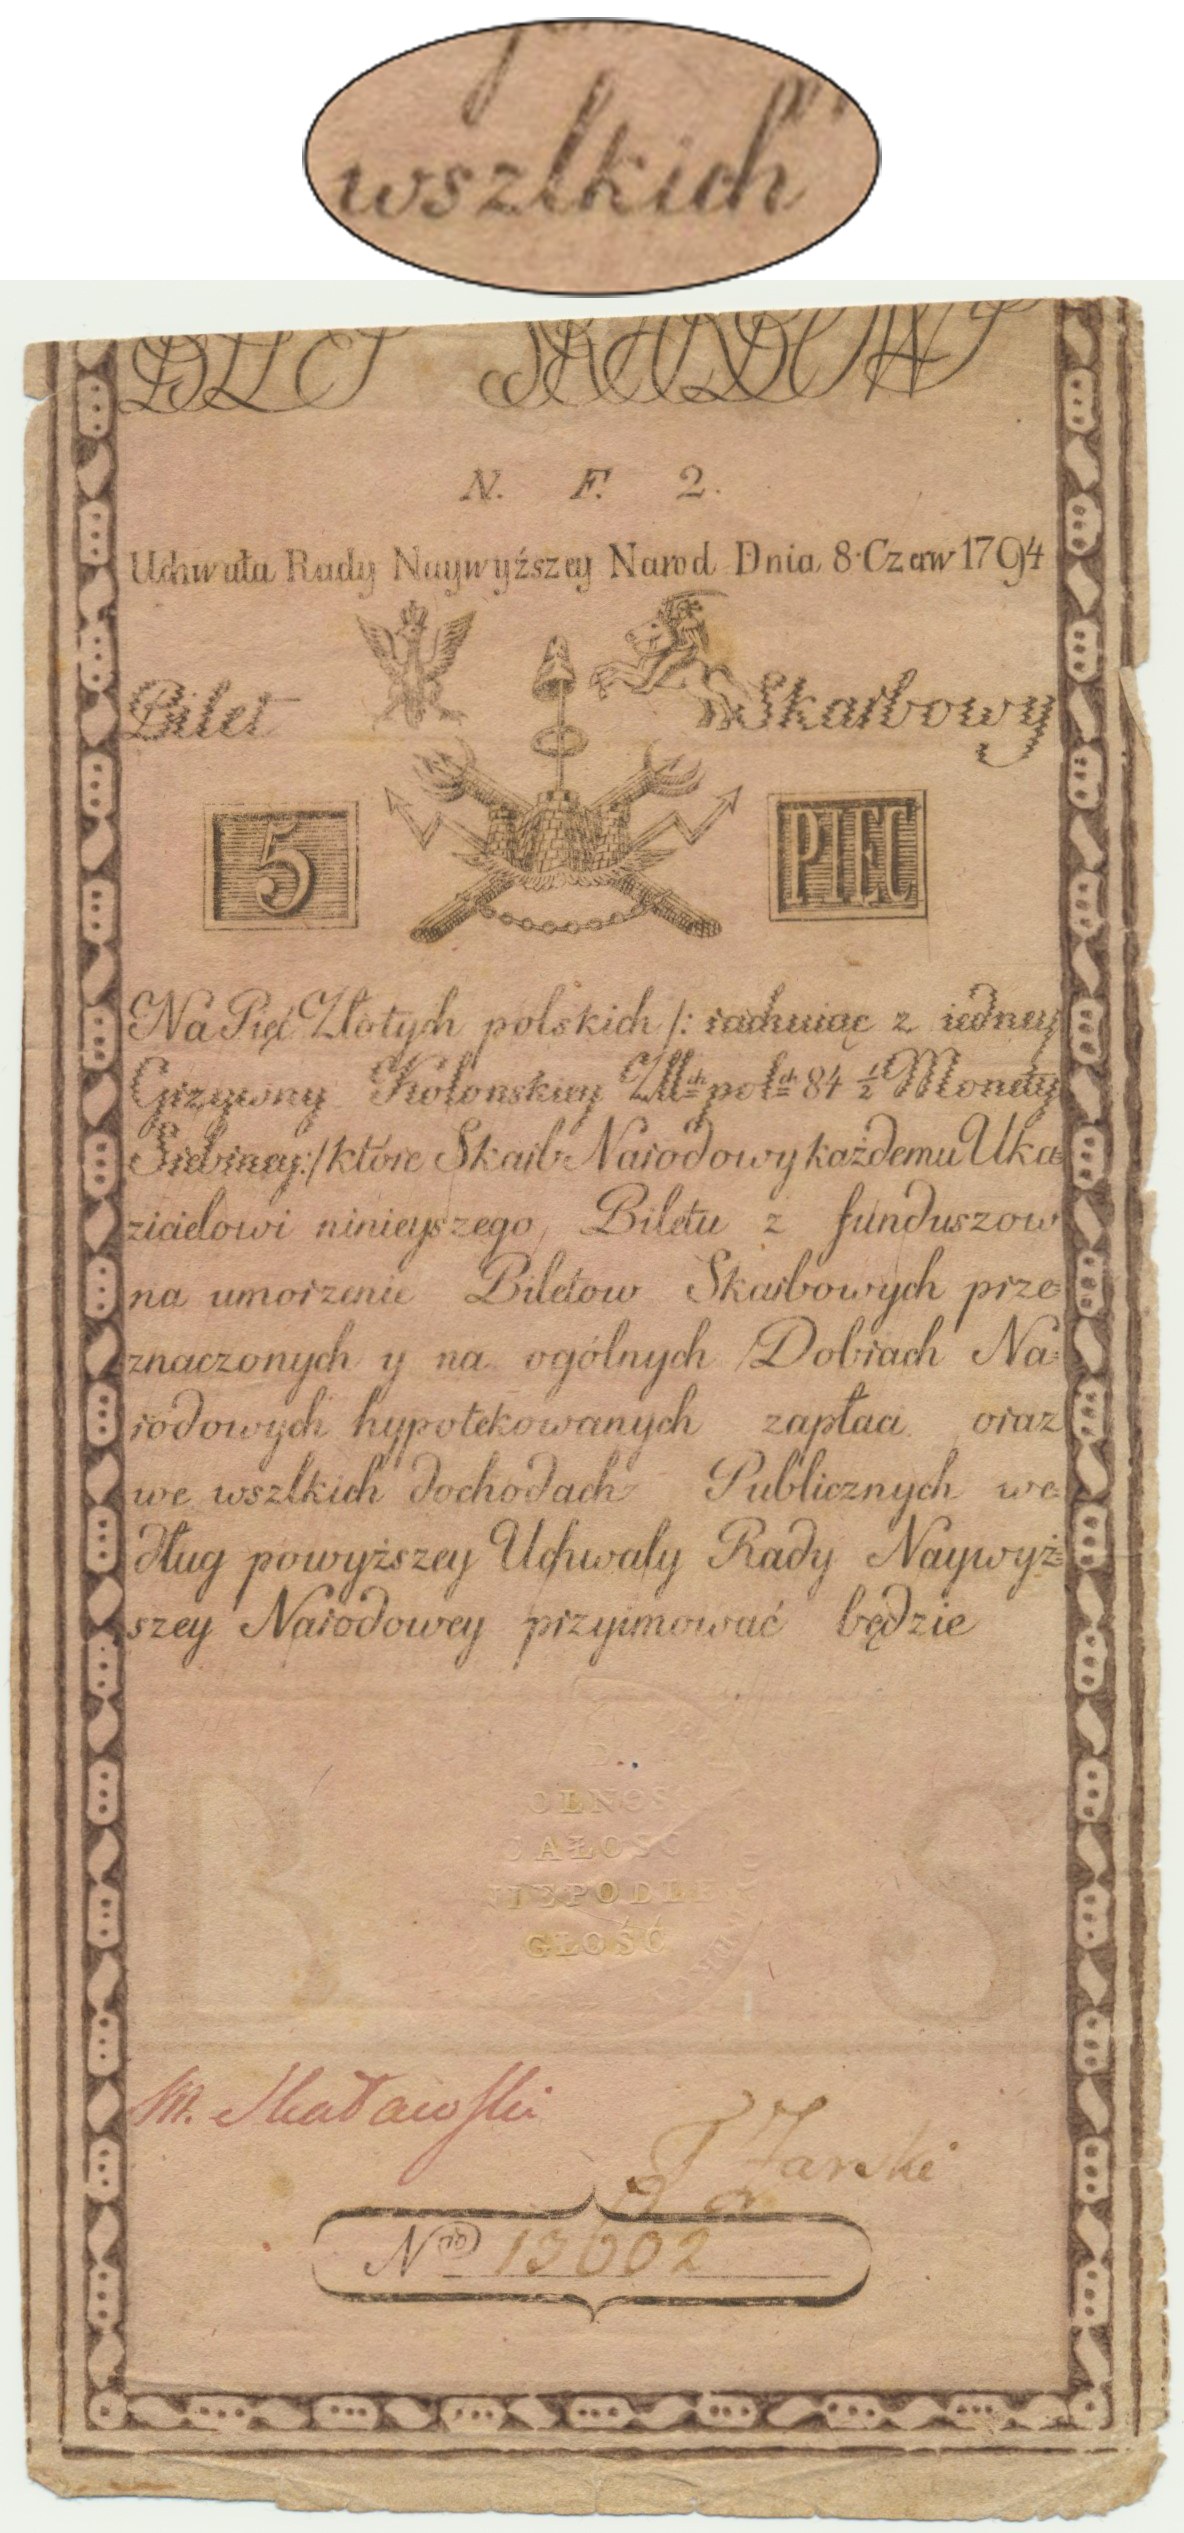 wszlkich
BILET SKARBOWY
N. F. 2.
Uchwała Rady Naywyźszey Narod Dnia 8 Czerw 1794
Bilet Skarbowy
5 PIĘC
Na Pięć Złotych polskich /: rachuiąc z iedney
Grzywny Kolonskiey Złł: ch pol: ch 84 1/2 Monety
Srebrney:/ które Skarb Narodowy każdemu Uka=
zicielowi ninieyszego Biletu z funduszow
na umorzenie Biletow Skarbowych prze=
znaczonych y na ogólnych Dobrach Na=
rodowych hypotekowanych zapłaci oraz
we wszlkich dochodach Publicznych we=
dług powyższey Uchwały Rady Naywyż=
szey Narodowey przyimować będzie
OLNOSC
CAŁOSC
NIEPODLE
GŁOŚĆ
B S
M. Skaławski
Żarski
Nro 13602